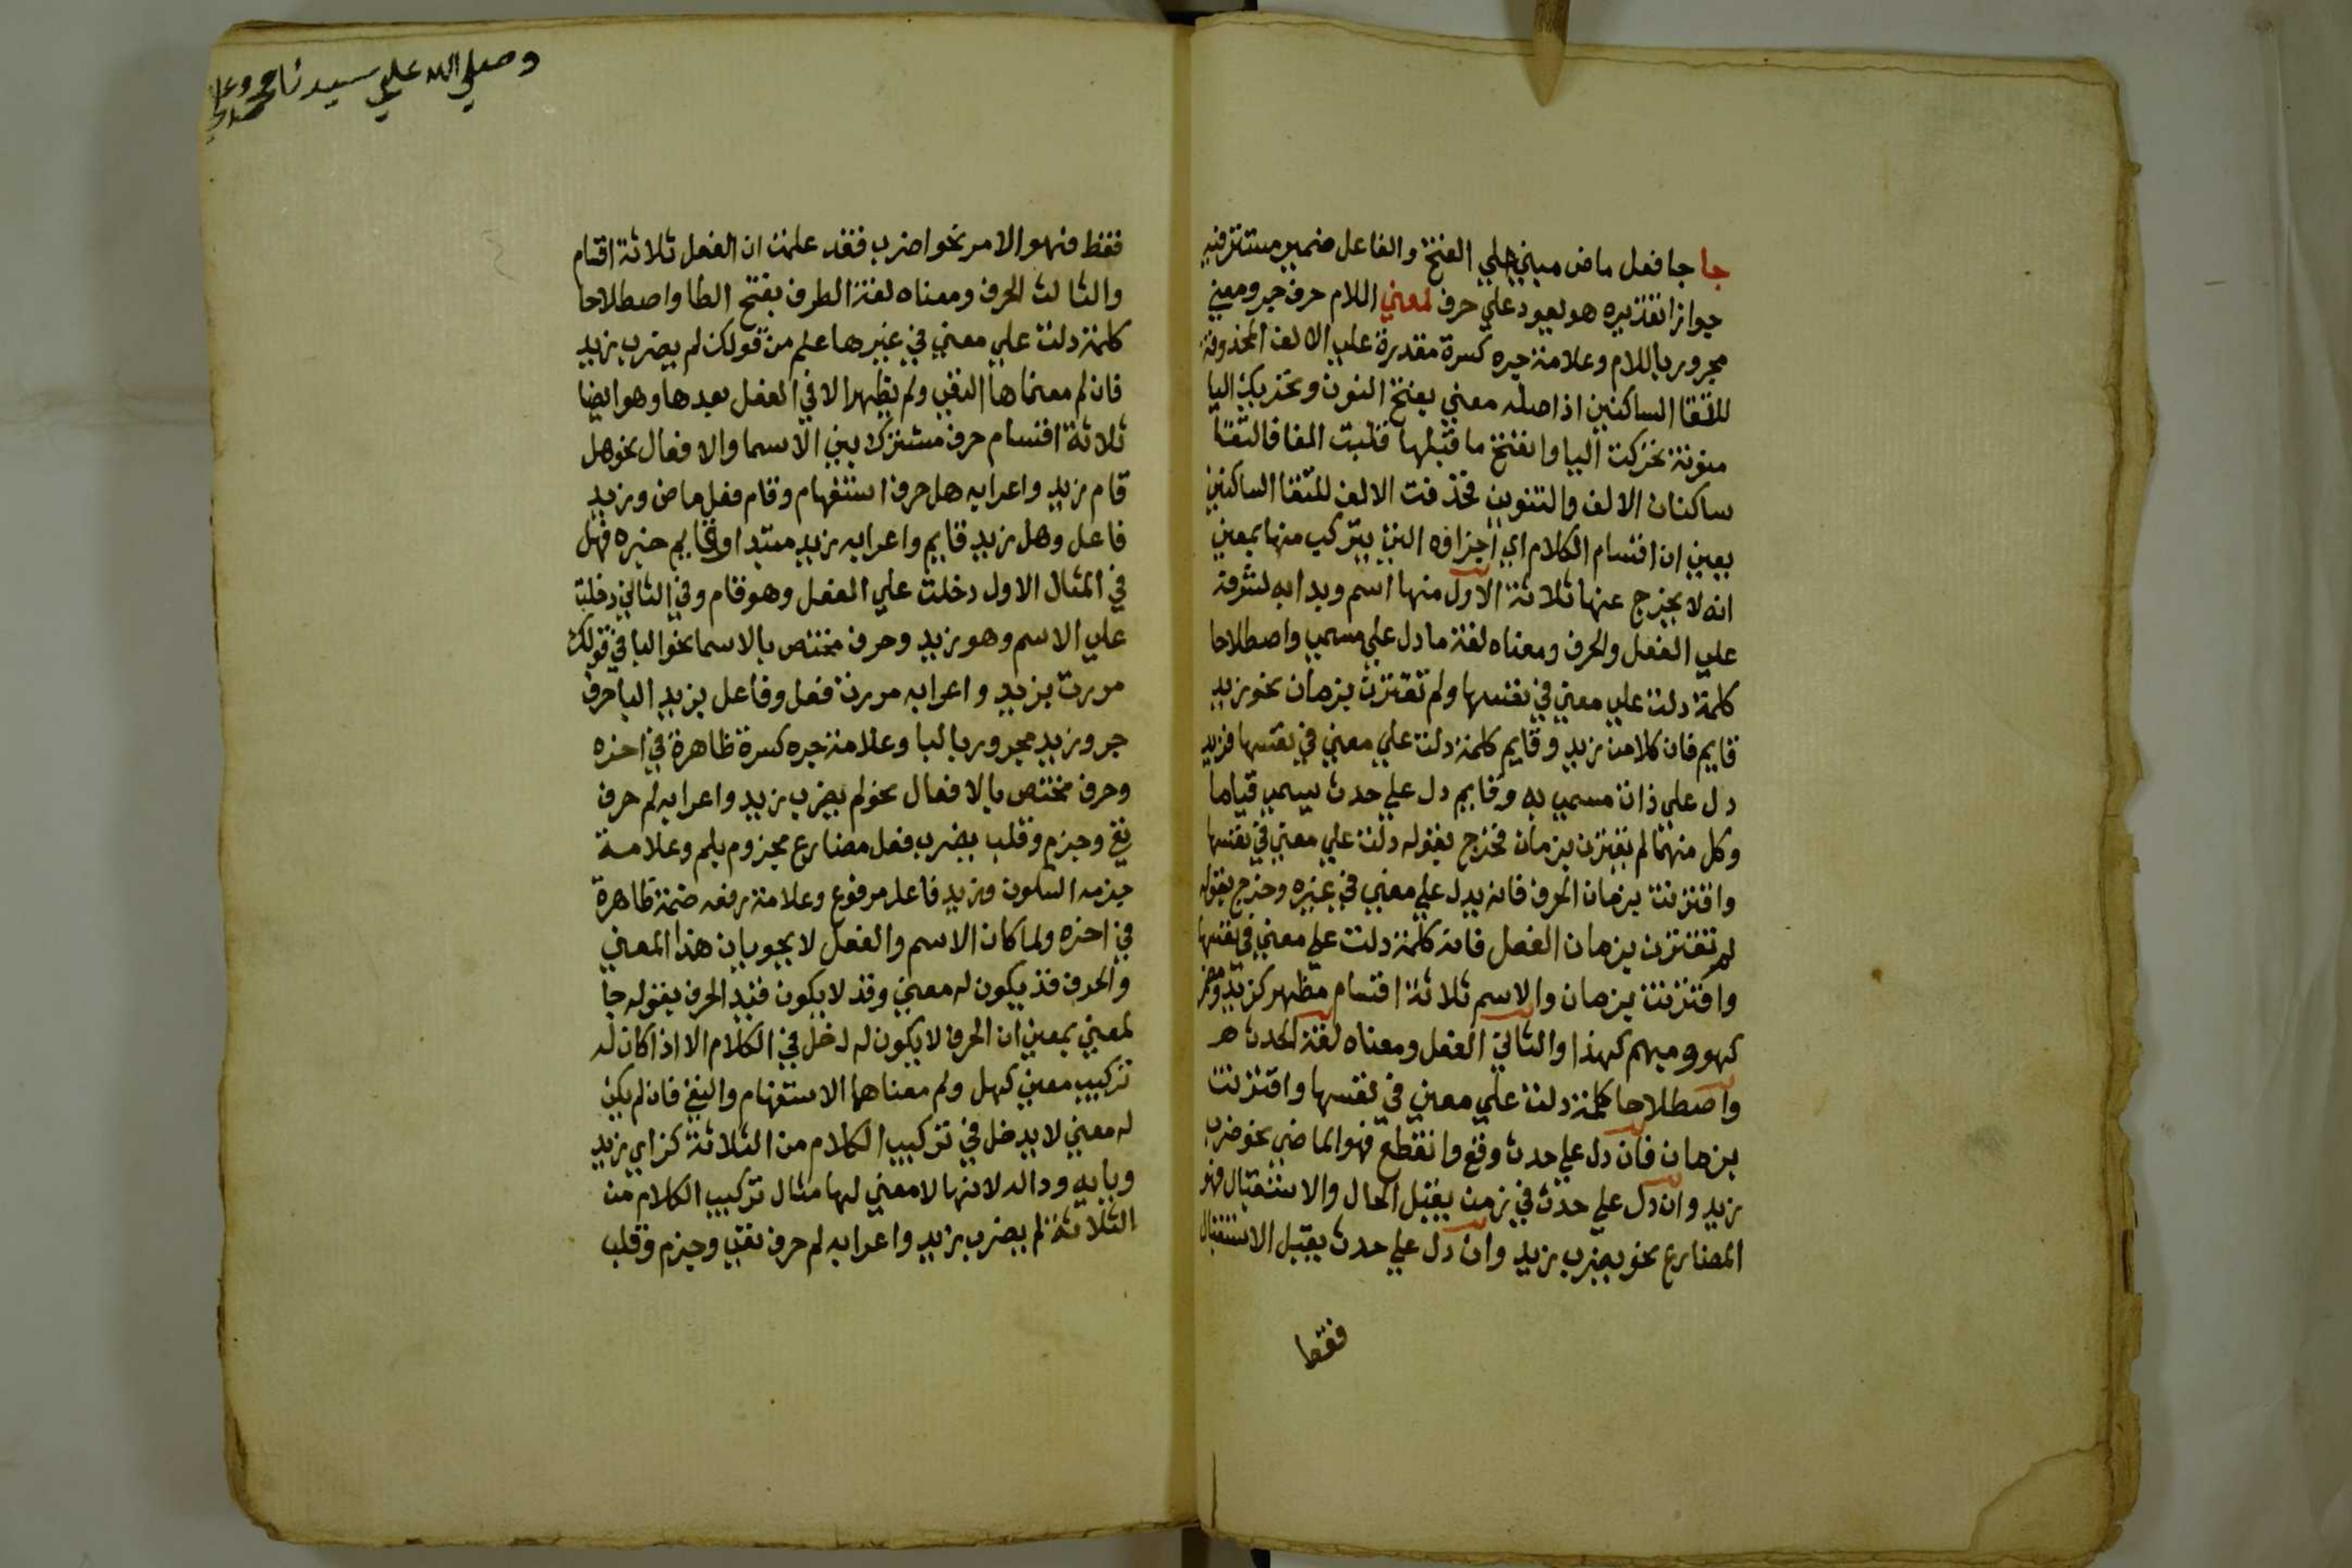 جا جا فعل ماض مبني علي الفتح والفاعل ضمير مستتر فيه
جوازا تقديره هو يعود علي حرف لمعني اللام حرف جر ومعني
مجرور باللام وعلامة جره كسرة مقدرة علي الالف المحذوفة
للتقا الساكنين اذ اصله معني بفتح النون وتحريك اليا
منونة تحركت اليا وانفتح ما قبلها قلبت الفا فالتقا
ساكنان الالف والتنوين فحذفت الالف للتقا الساكنين
يعني ان اقسام الكلام اي اجزاوه التي يتركب منها بمعني
انه لا يخرج عنها ثلاثة الاول منها اسم وبدا به لشرفه
علي الفعل والحرف ومعناه لغة ما دل علي مسمي واصطلاحا
كلمة دلت علي معني في نفسها ولم تقترن بزمان نحو زيد
قايم فان كلا من زيد وقايم كلمة دلت علي معني في نفسها فزيد
دل علي ذات مسمي به وقايم دل علي حدث يسمي قياما
وكل منهما لم يقترن بزمان فخرج بقوله دلت علي معني في نفسها
واقترنت بزمان الحرف فانه يدل علي معني في غيره وخرج بقوله
لم تقترن بزمان الفعل فانه كلمة دلت علي معني في نفسها
واقترنت بزمان والاسم ثلاثة اقسام مظهر كزيد ومضمر
كهو ومبهم كهذا والثاني الفعل ومعناه لغة الحدث
واصطلاحا كلمة دلت علي معني في نفسها واقترنت
بزمان فان دل علي حدث وقع وانقطع فهو الماضي نحو ضرب
زيد وان دل علي حدث في زمن يقبل الحال والاستقبال فهو
المضارع نحو يضرب زيد وان دل علي حدث يقبل الاستقبال
فقط
وصلي الله علي سيدنا محمد وعلي
فقط فهو الامر نحو اضرب فقد علمت ان الفعل ثلاثة اقسام
والثالث الحرف ومعناه لغة الطرف بفتح الطا واصطلاحا
كلمة دلت علي معني في غيرها علم من قولك لم يضرب زيد
فان لم معناها النفي ولم يظهر الا في الفعل بعدها وهو ايضا
ثلاثة اقسام حرف مشترك بين الاسما والافعال نحو هل
قام زيد واعرابه هل حرف استفهام وقام فعل ماض وزيد
فاعل وهل زيد قايم واعرابه زيد مبتدا وقايم خبره فهل
في المثال الاول دخلت علي الفعل وهو قام وفي الثاني دخلت
علي الاسم وهو زيد وحرف مختص بالاسما نحو البا في قولك
مررت بزيد واعرابه مررت فعل وفاعل بزيد البا حرف
جر وزيد مجرور بالبا وعلامة جره كسرة ظاهرة في اخره
وحرف مختص بالافعال نحو لم يضرب زيد واعرابه لم حرف
نفي وجزم وقلب يضرب فعل مضارع مجزوم بلم وعلامة
جزمه السكون وزيد فاعل مرفوع وعلامة رفعه ضمة ظاهرة
في اخره ولما كان الاسم والفعل لا يجوبان هذا المعني
والحرف قد يكون له معني وقد لا يكون قيد الحرف بقوله جا
لمعني بمعني ان الحرف لا يكون له دخل في الكلام الا اذا كان له
تركيب معني كهل ولم معناهما الاستفهام والنفي فان لم يكن
له معني لا يدخل في تركيب الكلام من الثلاثة كزاي زيد
ويايه وداله لانها لا معني لها مثال تركيب الكلام من
الثلاثة لم يضرب زيد واعرابه لم حرف نفي وجزم وقلب